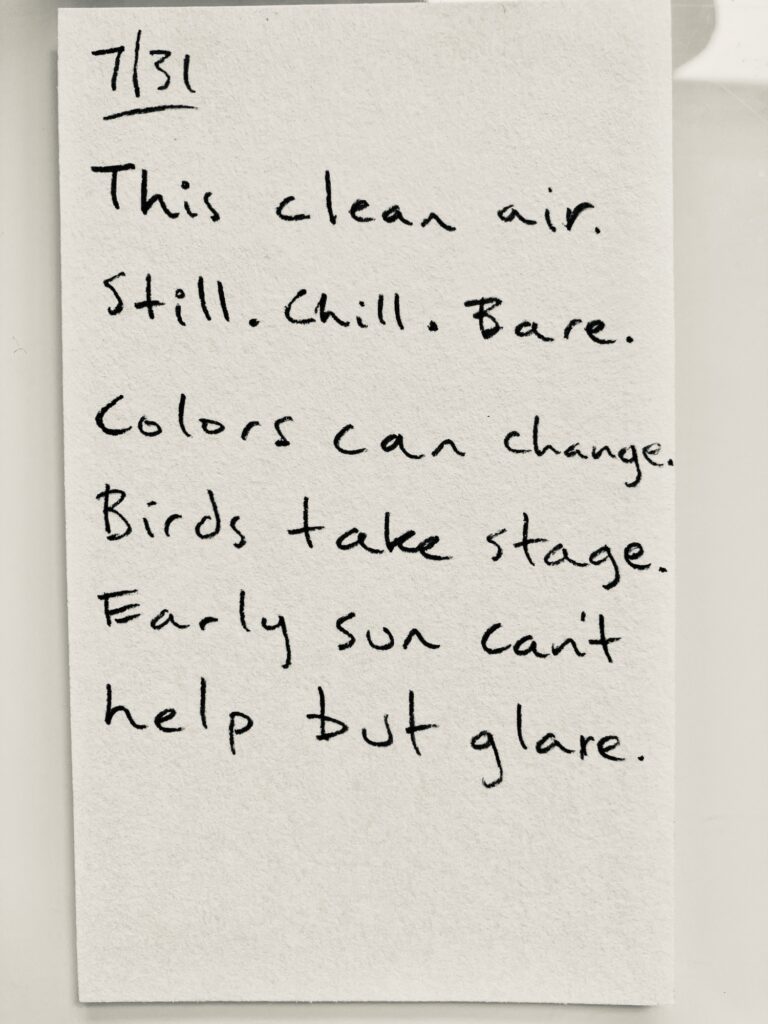 7/31
This clean air.
Still. Chill. Bare.
Colors can change.
Birds take stage.
Early sun can't
help but glare.